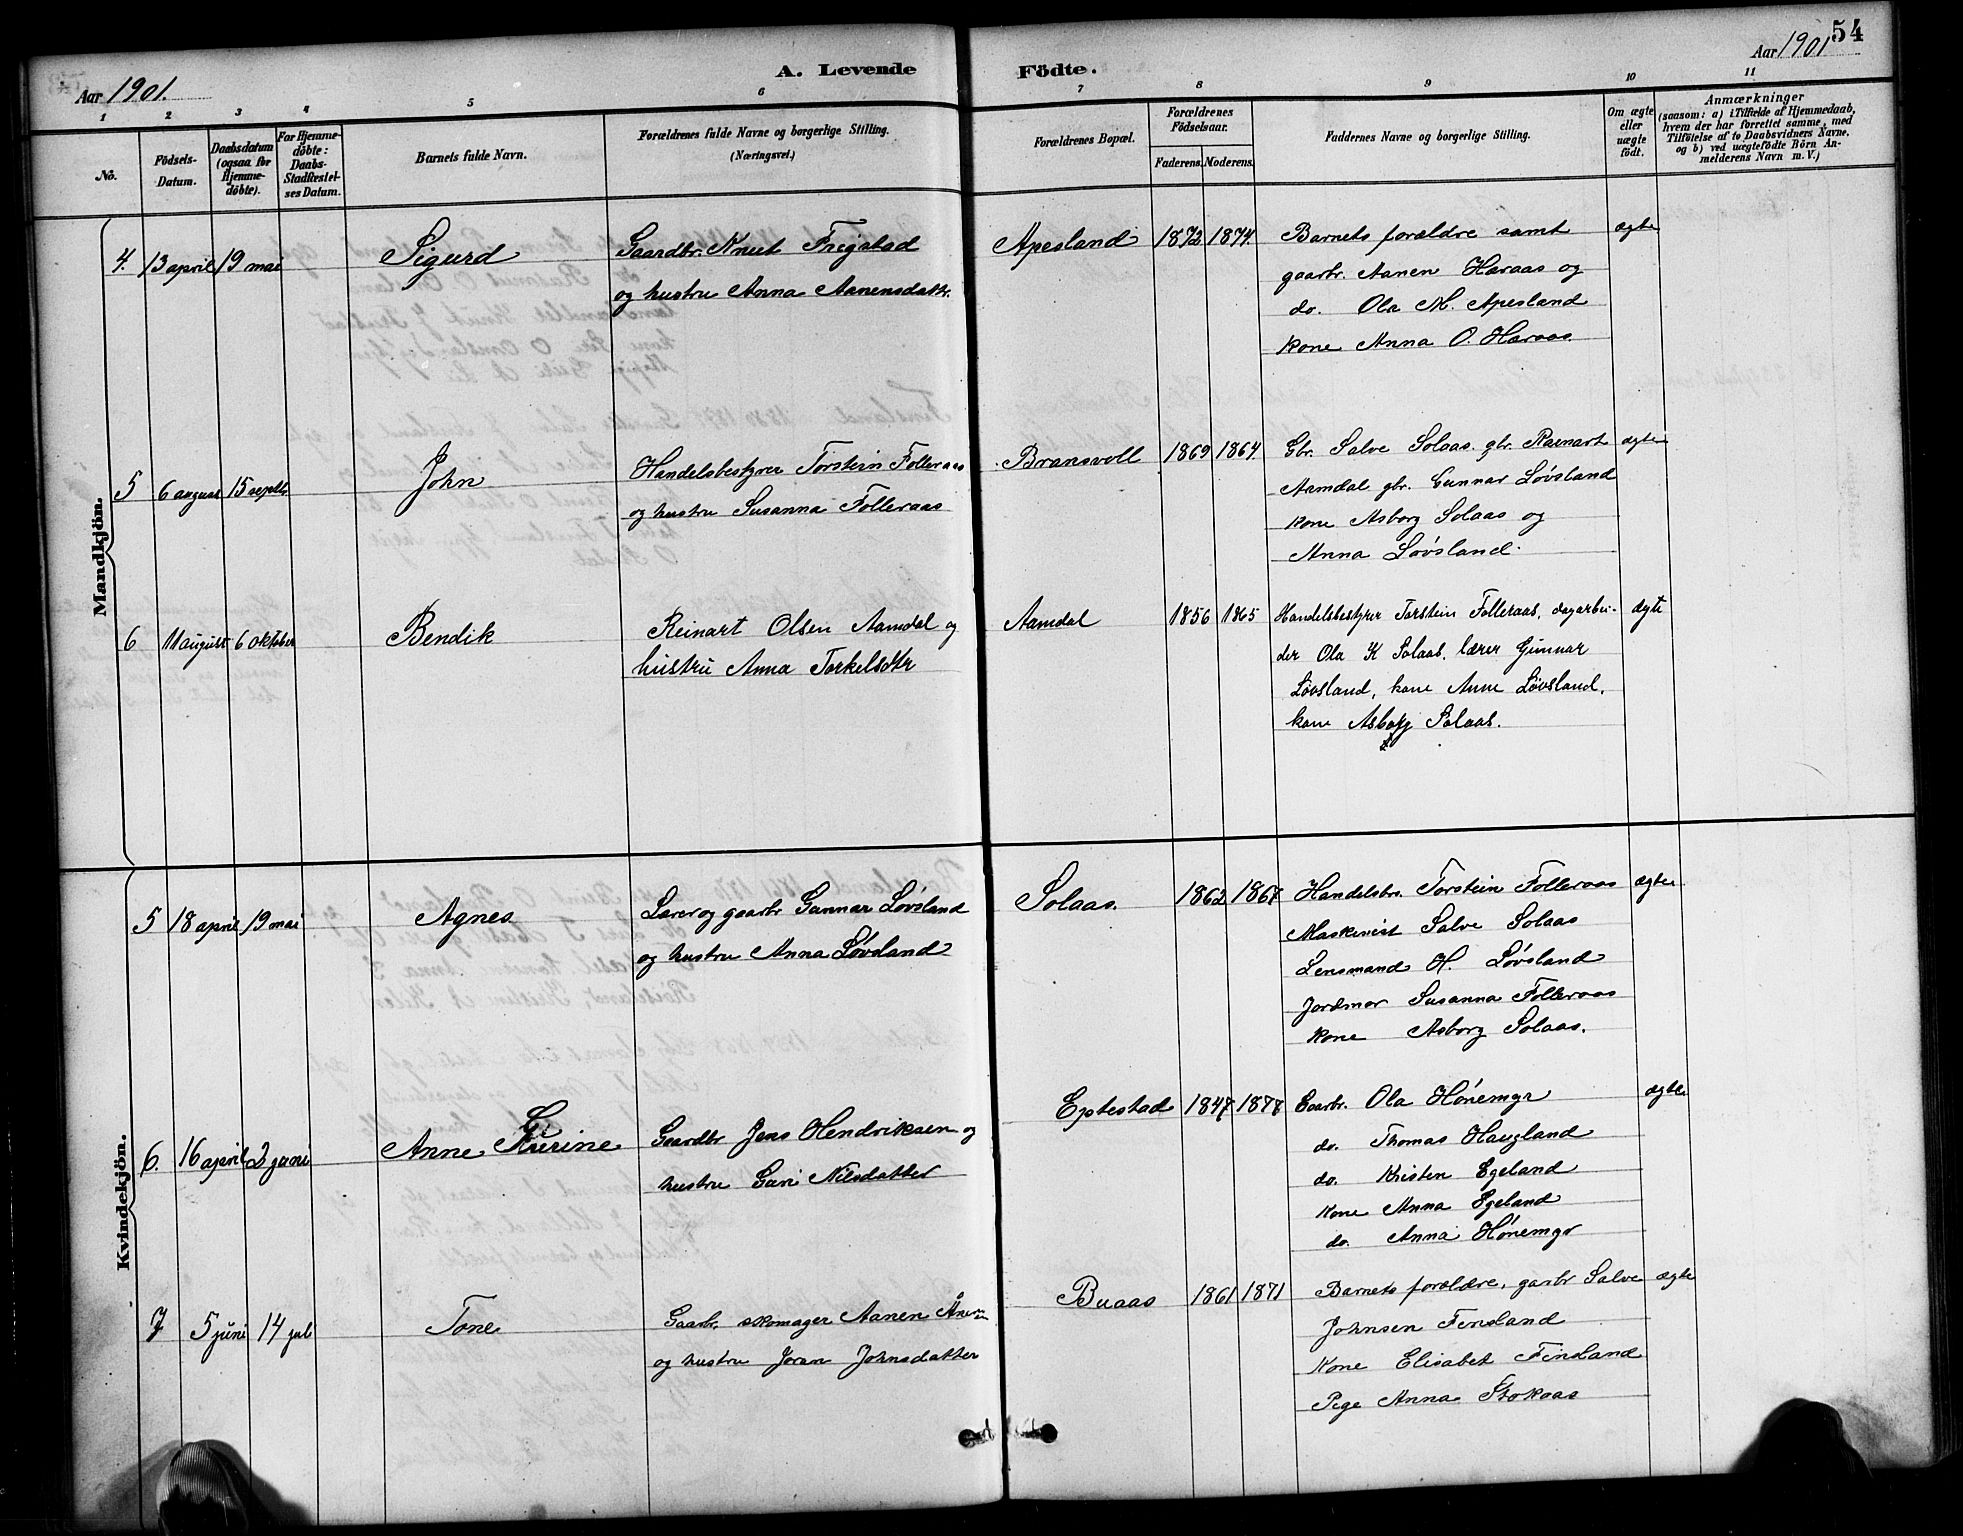 54
Aar 1901.
A. Levende Födte.
Aar 1901
1 2 3 4 5 6 7 8 9 10 11
No.
Födsels-Datum.
Daabsdatum (ogsaa for Hjemmedöbte).
For Hjemmedöbte: Daabs-Stadfæstelses Datum.
Barnets fulde Navn.
Forældrenes fulde Navne og borgerlige Stilling. (Næringsvei.)
Forældrenes Bopæl.
Forældrenes Födselsaar.
Faderens. Moderens.
Faddernes Navne og borgerlige Stilling.
Om ægte eller uægte födt.
Anmærkninger
(saasom: a) i Tilfælde af Hjemmedaab, hvem der har forrettet samme, med Tilföielse af to Daabsvidners Navne, og b) ved uægtefödte Börn Anmelderens Navn m. V.)
Mandkjön.
4. 13 april 19 mai Sigurd Gaardbr. Knut Frigstad Apesland 1872 1874. Barnets forældre samt ægte
og hustru Anna Aanensdattr. gaarbr. Aanen Haraas og
do. Ola M. Apesland
kone Anna O. Haraas.
5 6 august 15 septbr John Handelsbestyrer Torstein Folleraas Bransvoll 1869 1864 Gbr. Salve Solaas. gbr. Rainart ægte
og hustru Susanna Folleraas Aamdal gbr. Gunnar Løvsland
kone Asborg Solaas og
Anna Løvsland.
6 11 august 6 oktober Bendik Reinart Olsen Aamdal og Aamdal 1856 1865 Handelsbestyrer Torstein Folleraas, dagarbei- ægte
hustru Anna Torkelsdtr der Ola K Solaas. lærer Gunnar
Løvsland, kone Anne Løvsland,
kone Asborg Solaas.
Kvindekjön.
5 18 april 19 mai Agnes Lærer og gaarbr Gunnar Løvsland Solaas. 1862 1867 Handelsbs. Torstein Folleraas ægte
og hustru Anna Løvsland Maskinist Salve Solaas
Lensmand H. Løvsland
Jordmor Susanna Folleraas
kone Asborg Solaas.
6. 16 april 2 juni Anne Gurine Gaardbr Jens Hendriksen og Eptestad 1847 1878 Gaarbr. Ola Hónemyr ægte
hustru Guri Nilsdatter do. Thomas Haugland
do. Kristen Egeland
kone Anna Egeland
do. Anna Hónemyr
7 5 juni 14 juli Tone Gaarbr. skomager Aanen Ånensen Buaas 1861 1871 Barnets forældre, garbr Salve ægte
og hustru Joran Johnsdatter Johnsen Finsland
Kone Elisabet Finsland
Pige Anna Stokaas